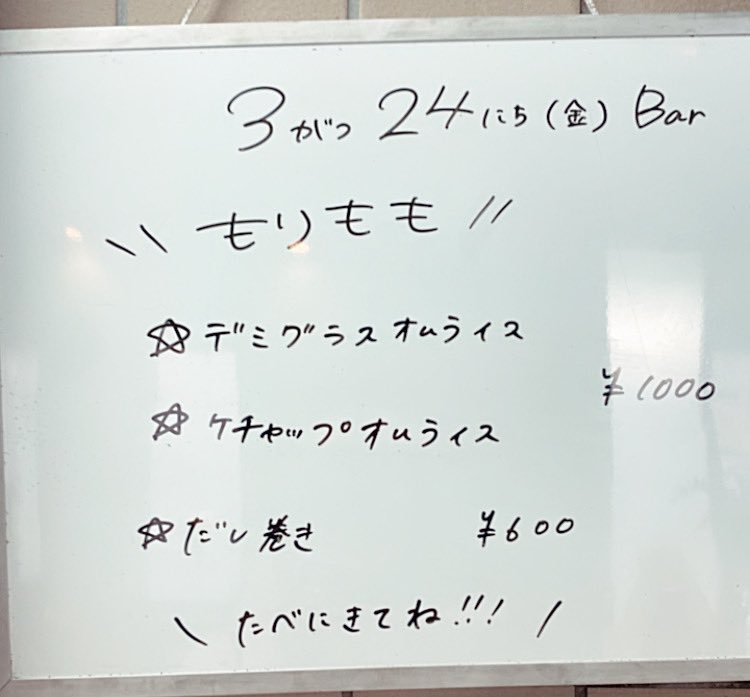 3がつ 24にち(金) Bar
\\ もりもも //
☆デミグラスオムライス
¥1000
☆ケチャップオムライス
☆だし巻き ¥600
\ たべにきてね!!! /